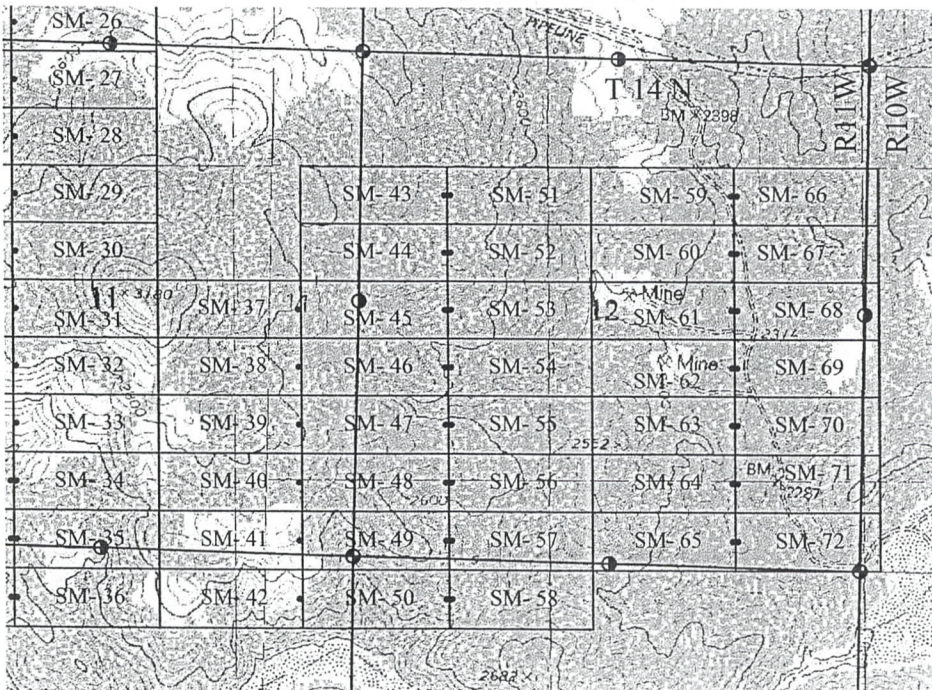 SM- 26
PIPELINE
SM- 27
T 14 N
R11W
R10W
BM × 2398
SM- 28
SM- 29 SM- 43 SM- 51 SM- 59 SM- 66
SM- 30 SM- 44 SM- 52 SM- 60 SM- 67
11 × 3180 Mine
SM- 31 SM- 37 SM- 45 SM- 53 12 SM- 61 SM- 68
2314
SM- 32 SM- 38 SM- 46 SM- 54 Mine SM- 69
SM- 62
SM- 33 SM- 39 SM- 47 SM- 55 SM- 63 SM- 70
2552 ×
SM- 34 SM- 40 SM- 48 SM- 56 SM- 64 BM SM- 71
2600 × 2287
SM- 35 SM- 41 SM- 49 SM- 57 SM- 65 SM- 72
SM- 36 SM- 42 SM- 50 SM- 58
2683 ×